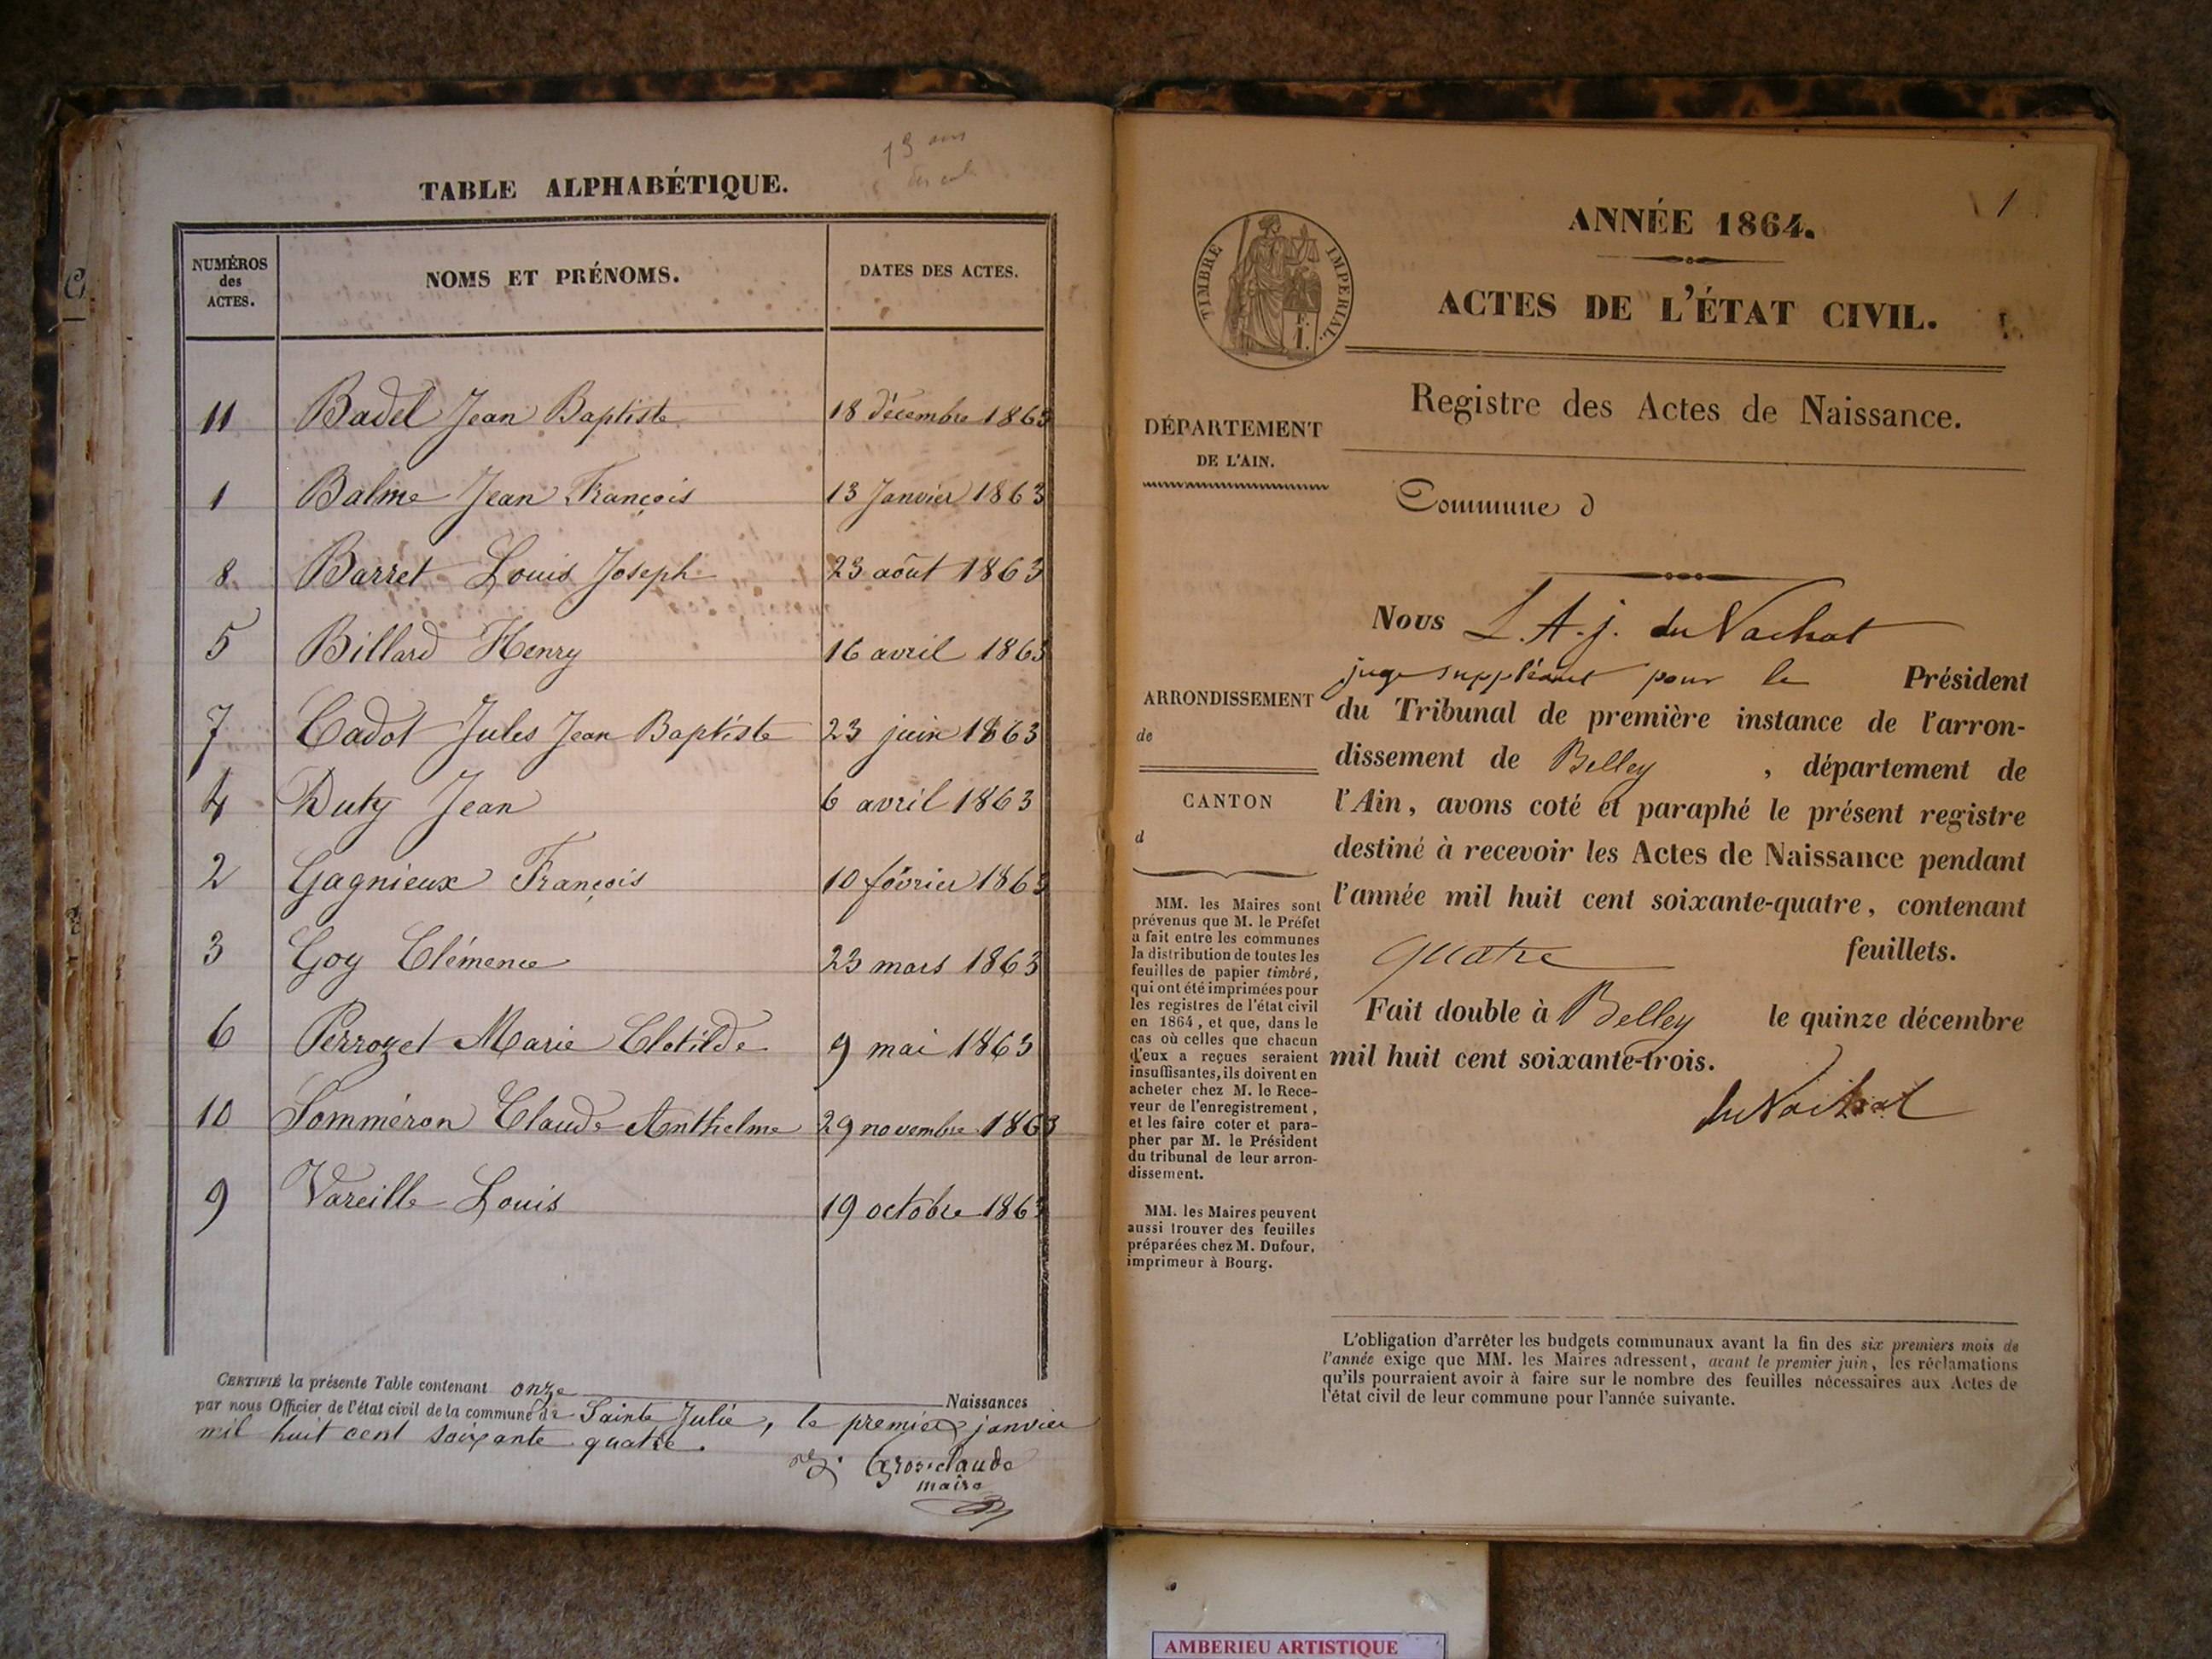 13 ans
TABLE ALPHABÉTIQUE.
NUMÉROS des ACTES. NOMS ET PRÉNOMS. DATES DES ACTES.
11 Badel Jean Baptiste 18 décembre 1863
1 Balme Jean François 13 Janvier 1863
8 Barret Louis Joseph 23 août 1863
5 Billard Henry 16 avril 1863
7 Cadot Jules Jean Baptiste 23 juin 1863
4 Duty Jean 6 avril 1863
2 Gagnieux François 10 février 1863
3 Goy Clémence 23 mars 1863
6 Perrozet Marie Clotilde 9 mai 1863
10 Somméron Claude Anthelme 29 novembre 1863
9 Vareille Louis 19 octobre 1863
CERTIFIÉ la présente Table contenant onze Naissances
par nous Officier de l'état civil de la commune de Sainte Julie, le premier janvier
mil huit cent soixante quatre.
Grosclaude
maire
1
ANNÉE 1864.
TIMBRE IMPÉRIAL.
ACTES DE L'ÉTAT CIVIL.
Registre des Actes de Naissance.
DÉPARTEMENT
DE L'AIN.
Commune d
ARRONDISSEMENT
de
CANTON
d
MM. les Maires sont
prévenus que M. le Préfet
a fait entre les communes
la distribution de toutes les
feuilles de papier timbré,
qui ont été imprimées pour
les registres de l'état civil
en 1864, et que, dans le
cas où celles que chacun
d'eux a reçues seraient
insuffisantes, ils doivent en
acheter chez M. le Rece-
veur de l'enregistrement,
et les faire coter et para-
pher par M. le Président
du tribunal de leur arron-
dissement.
MM. les Maires peuvent
aussi trouver des feuilles
préparées chez M. Dufour,
imprimeur à Bourg.
Nous L. A. J. du Vachat
juge suppléant pour le Président
du Tribunal de première instance de l'arron-
dissement de Belley, département de
l'Ain, avons coté et paraphé le présent registre
destiné à recevoir les Actes de Naissance pendant
l'année mil huit cent soixante-quatre, contenant
quatre feuillets.
Fait double à Belley le quinze décembre
mil huit cent soixante-trois.
du Vachat
L'obligation d'arrêter les budgets communaux avant la fin des six premiers mois de
l'année exige que MM. les Maires adressent, avant le premier juin, les réclamations
qu'ils pourraient avoir à faire sur le nombre des feuilles nécessaires aux Actes de
l'état civil de leur commune pour l'année suivante.
AMBERIEU ARTISTIQUE